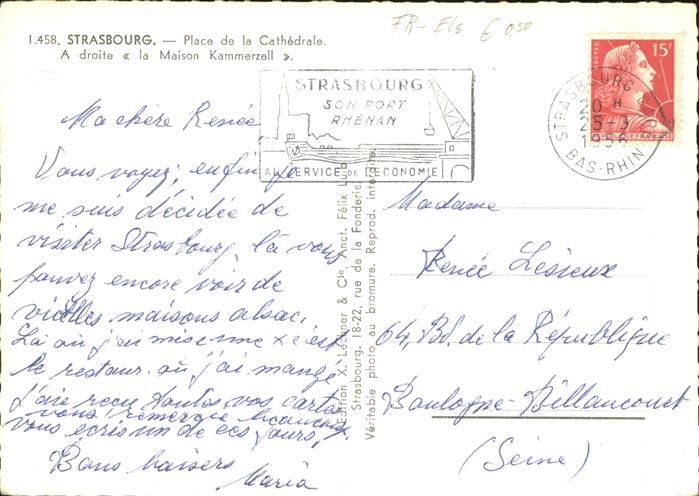 1.458. STRASBOURG. — Place de la Cathédrale.
A droite « la Maison Kammerzell ».
FR- Els. € 0,50
STRASBOURG
SON PORT
RHÉNAN
AU SERVICE DE L'ÉCONOMIE
POSTES
15F
REPUBLIQUE FRANÇAISE
STRASBOURG
20 H
25-9
1956
BAS-RHIN
Ma chère Renée
Vous voyez, enfin je
me suis décidée de
visiter Strasbourg, là vous
pouvez encore voir de
vieilles maisons alsac.
Là où j'ai mise une x c'est
le restaur. où j'ai mangé
J'aie reçu toutes vos cartes
vous remercie beaucoup.
vous ecris un de ces jours,
Bons baisers
Maria
Edition X. Lechner & Cie, Anct. Félix Luib
Strasbourg, 18-22, rue de la Fonderie.
Véritable photo au bromure. Reprod. interdite.
Madame
Renée Lesieux
64, Bd. de la République
Boulogne-Billancourt
(Seine)